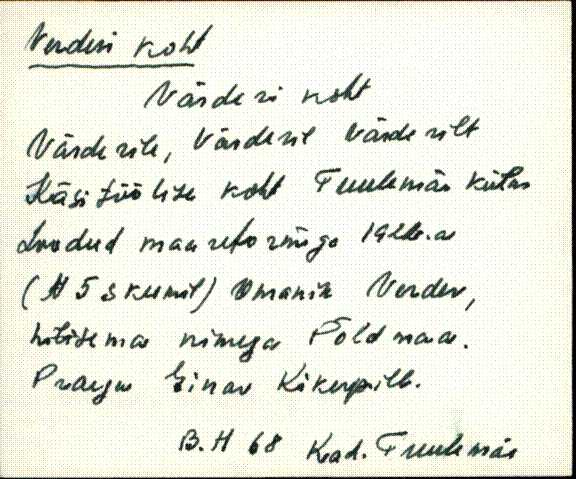 Verderi koht
Värderi koht
Värderile, Värderil Värderilt
Käsitöölise koht Tuulemäe külas
Loodud maareformiga 192 .a
(N 5 skeemil) Omanik Verder,
hilisema nimega Põldmaa.
Praegu Einar Kikerpill.
B.H 68 Kad. Tuulemäe